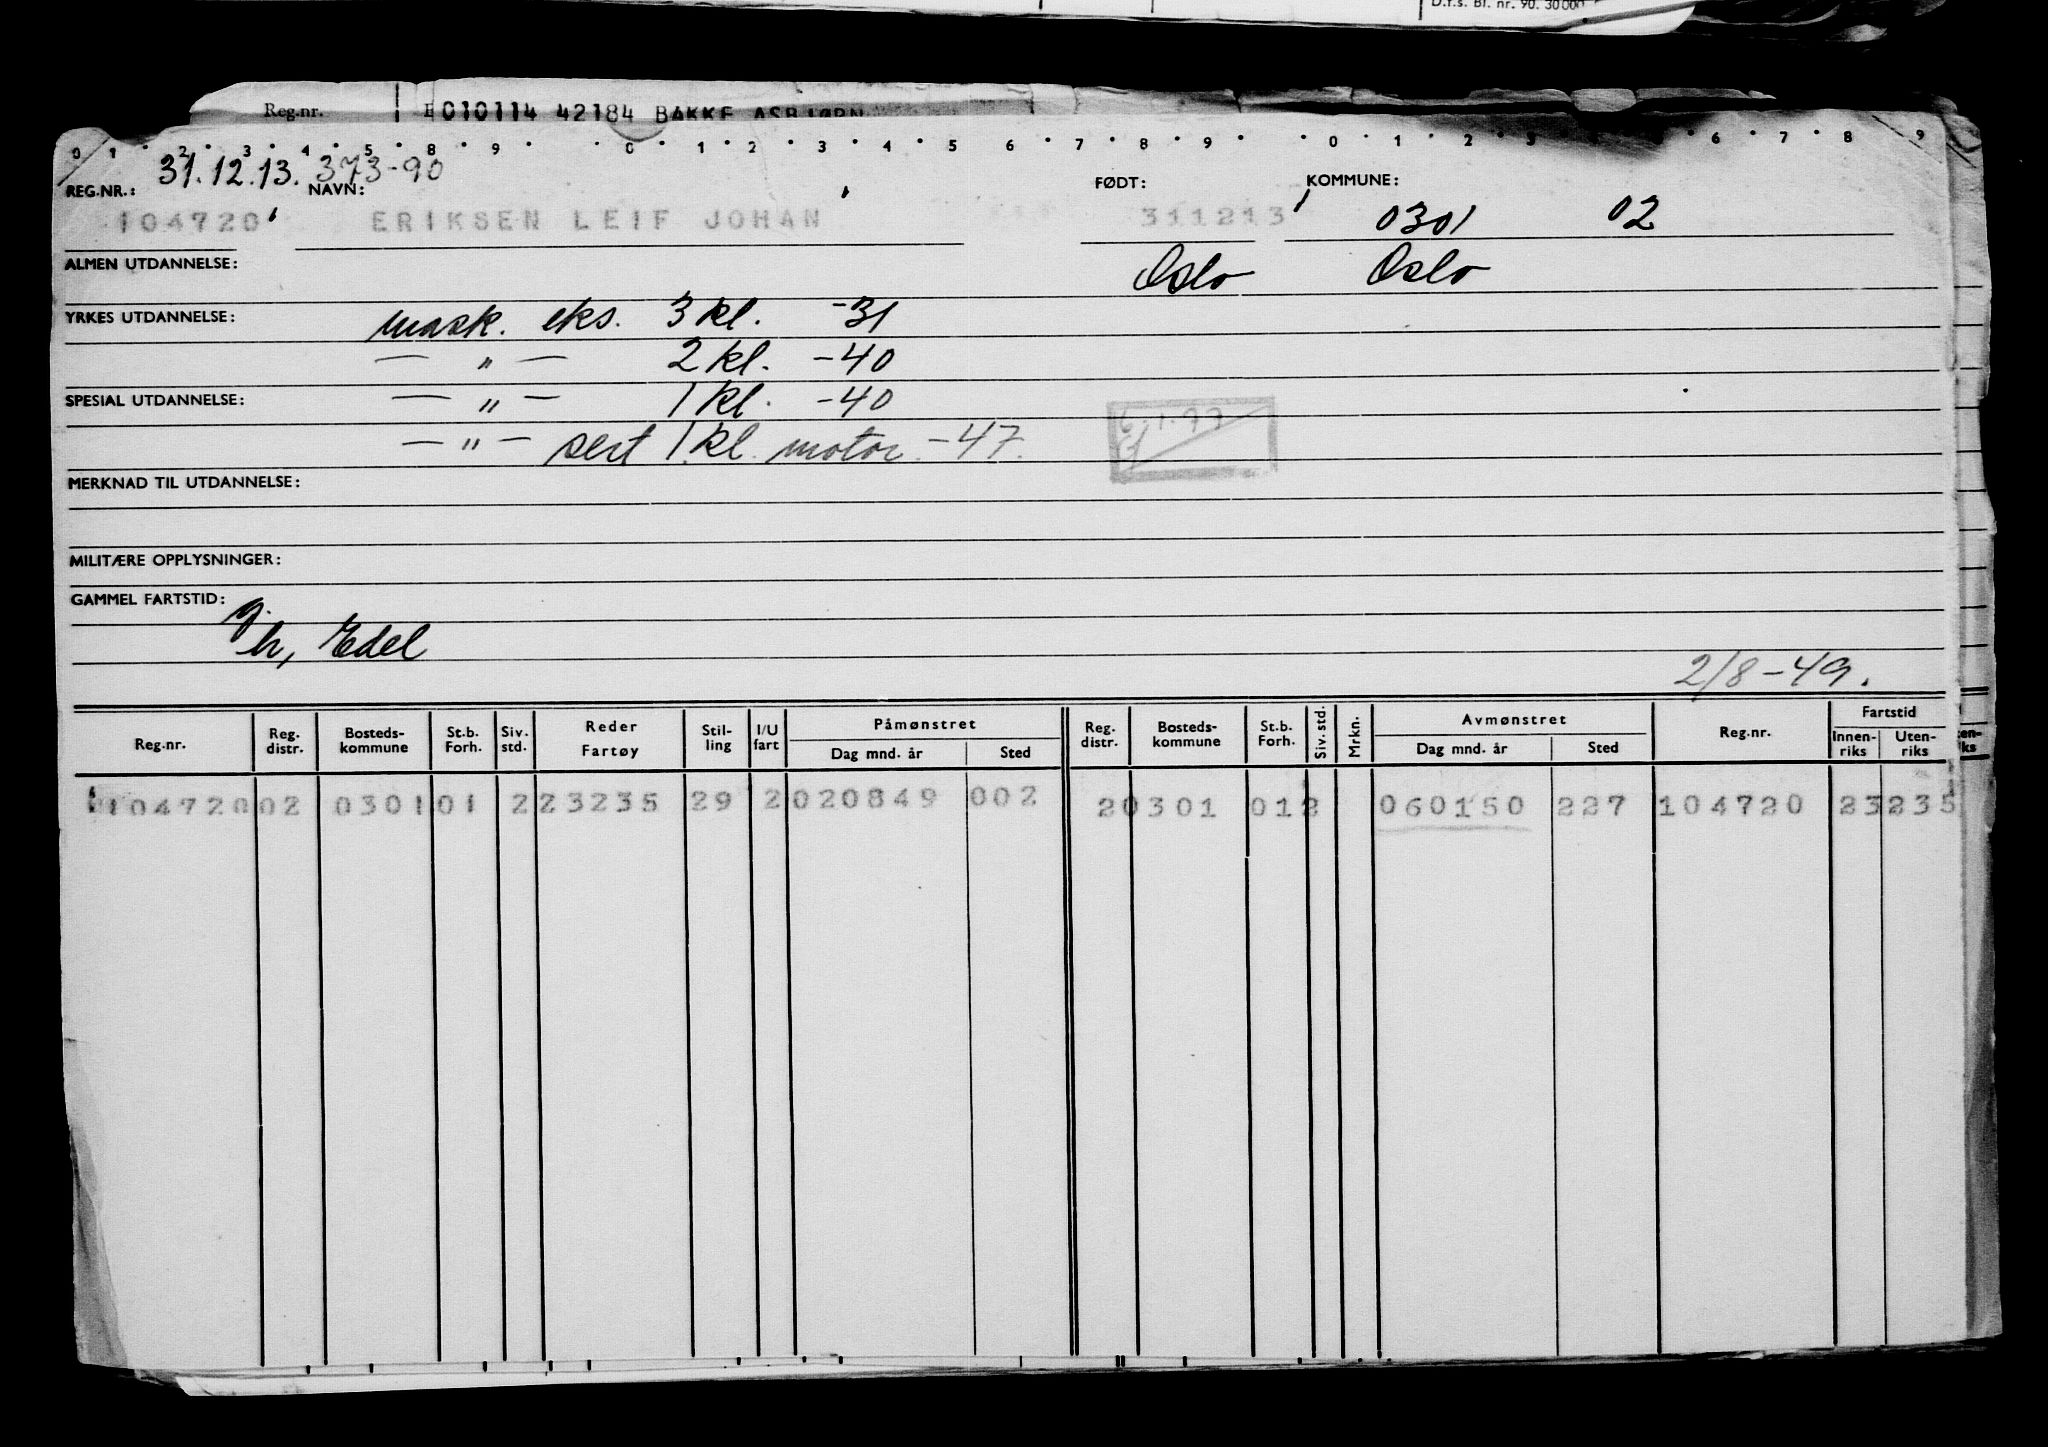 D.f.s. Bl. nr. 90. 30 000
Reg.nr. 010114 42184 BAKKE ASBJØRN
0 1 2 3 4 5 8 9 0 1 2 3 4 5 6 7 8 9 0 1 2 3 5 6 7 8 9
31.12.13. 373-90
REG.NR.: NAVN: FØDT: KOMMUNE:
104720 ERIKSEN LEIF JOHAN 311213 0301 02
ALMEN UTDANNELSE: Oslo Oslo
YRKES UTDANNELSE: mask. eks. 3 kl. -31
— " — 2 kl. -40
SPESIAL UTDANNELSE: — " — 1 kl. -40
— " — sert 1 kl. motor -47.
MERKNAD TIL UTDANNELSE:
MILITÆRE OPPLYSNINGER:
GAMMEL FARTSTID:
g. h, Edel
2/8-49.
Reg.nr. Reg. distr. Bosteds- kommune St.b. Forh. Siv. std. Reder Fartøy Stil- ling I/U fart Påmønstret Dag mnd. år Sted Reg. distr. Bosteds- kommune St.b. Forh. Siv. std. Mrkn. Avmønstret Dag mnd. år Sted Reg.nr. Fartstid Innen- riks Uten- riks
104720 02 0301 01 2 23235 29 2 020849 002 2 0301 01 2 060150 227 104720 23235